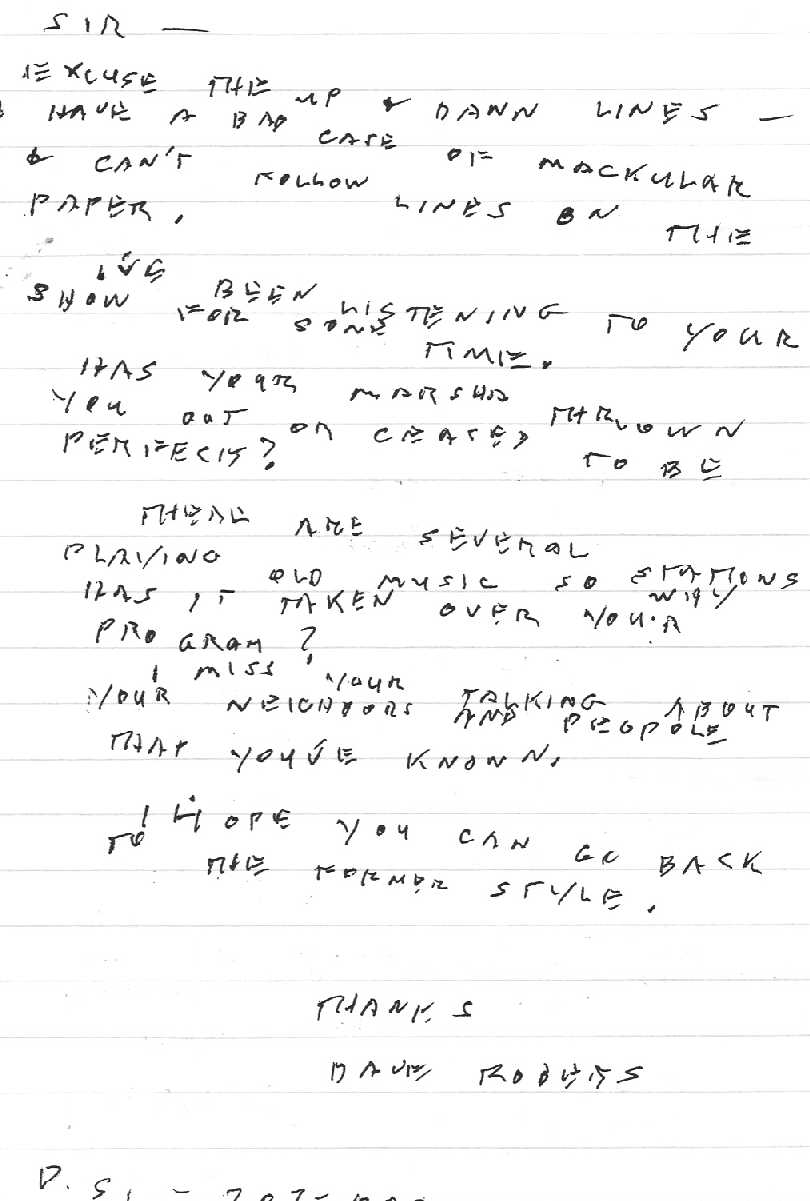 SIR —
EXCUSE THE UP & DANN LINES —
HAVE A BAD CASE OF MACKULAR
& CAN'T FOLLOW LINES ON THE
PAPER.
I'VE BEEN LISTENING TO YOUR
SHOW FOR SOME TIME.
HAS YOUR MARSHA THROWN
YOU OUT OR CEASED TO BE
PERFECT?
THERE ARE SEVERAL STATIONS
PLAYING OLD MUSIC SO WHY
HAS IT TAKEN OVER YOUR
PROGRAM?
I MISS YOUR TALKING ABOUT
YOUR NEIGHBORS AND PEOPOLE
THAT YOU'VE KNOWN.
I HOPE YOU CAN GO BACK
TO THE FORMER STYLE.
THANKS
DAVE ROBERTS
P.S. -